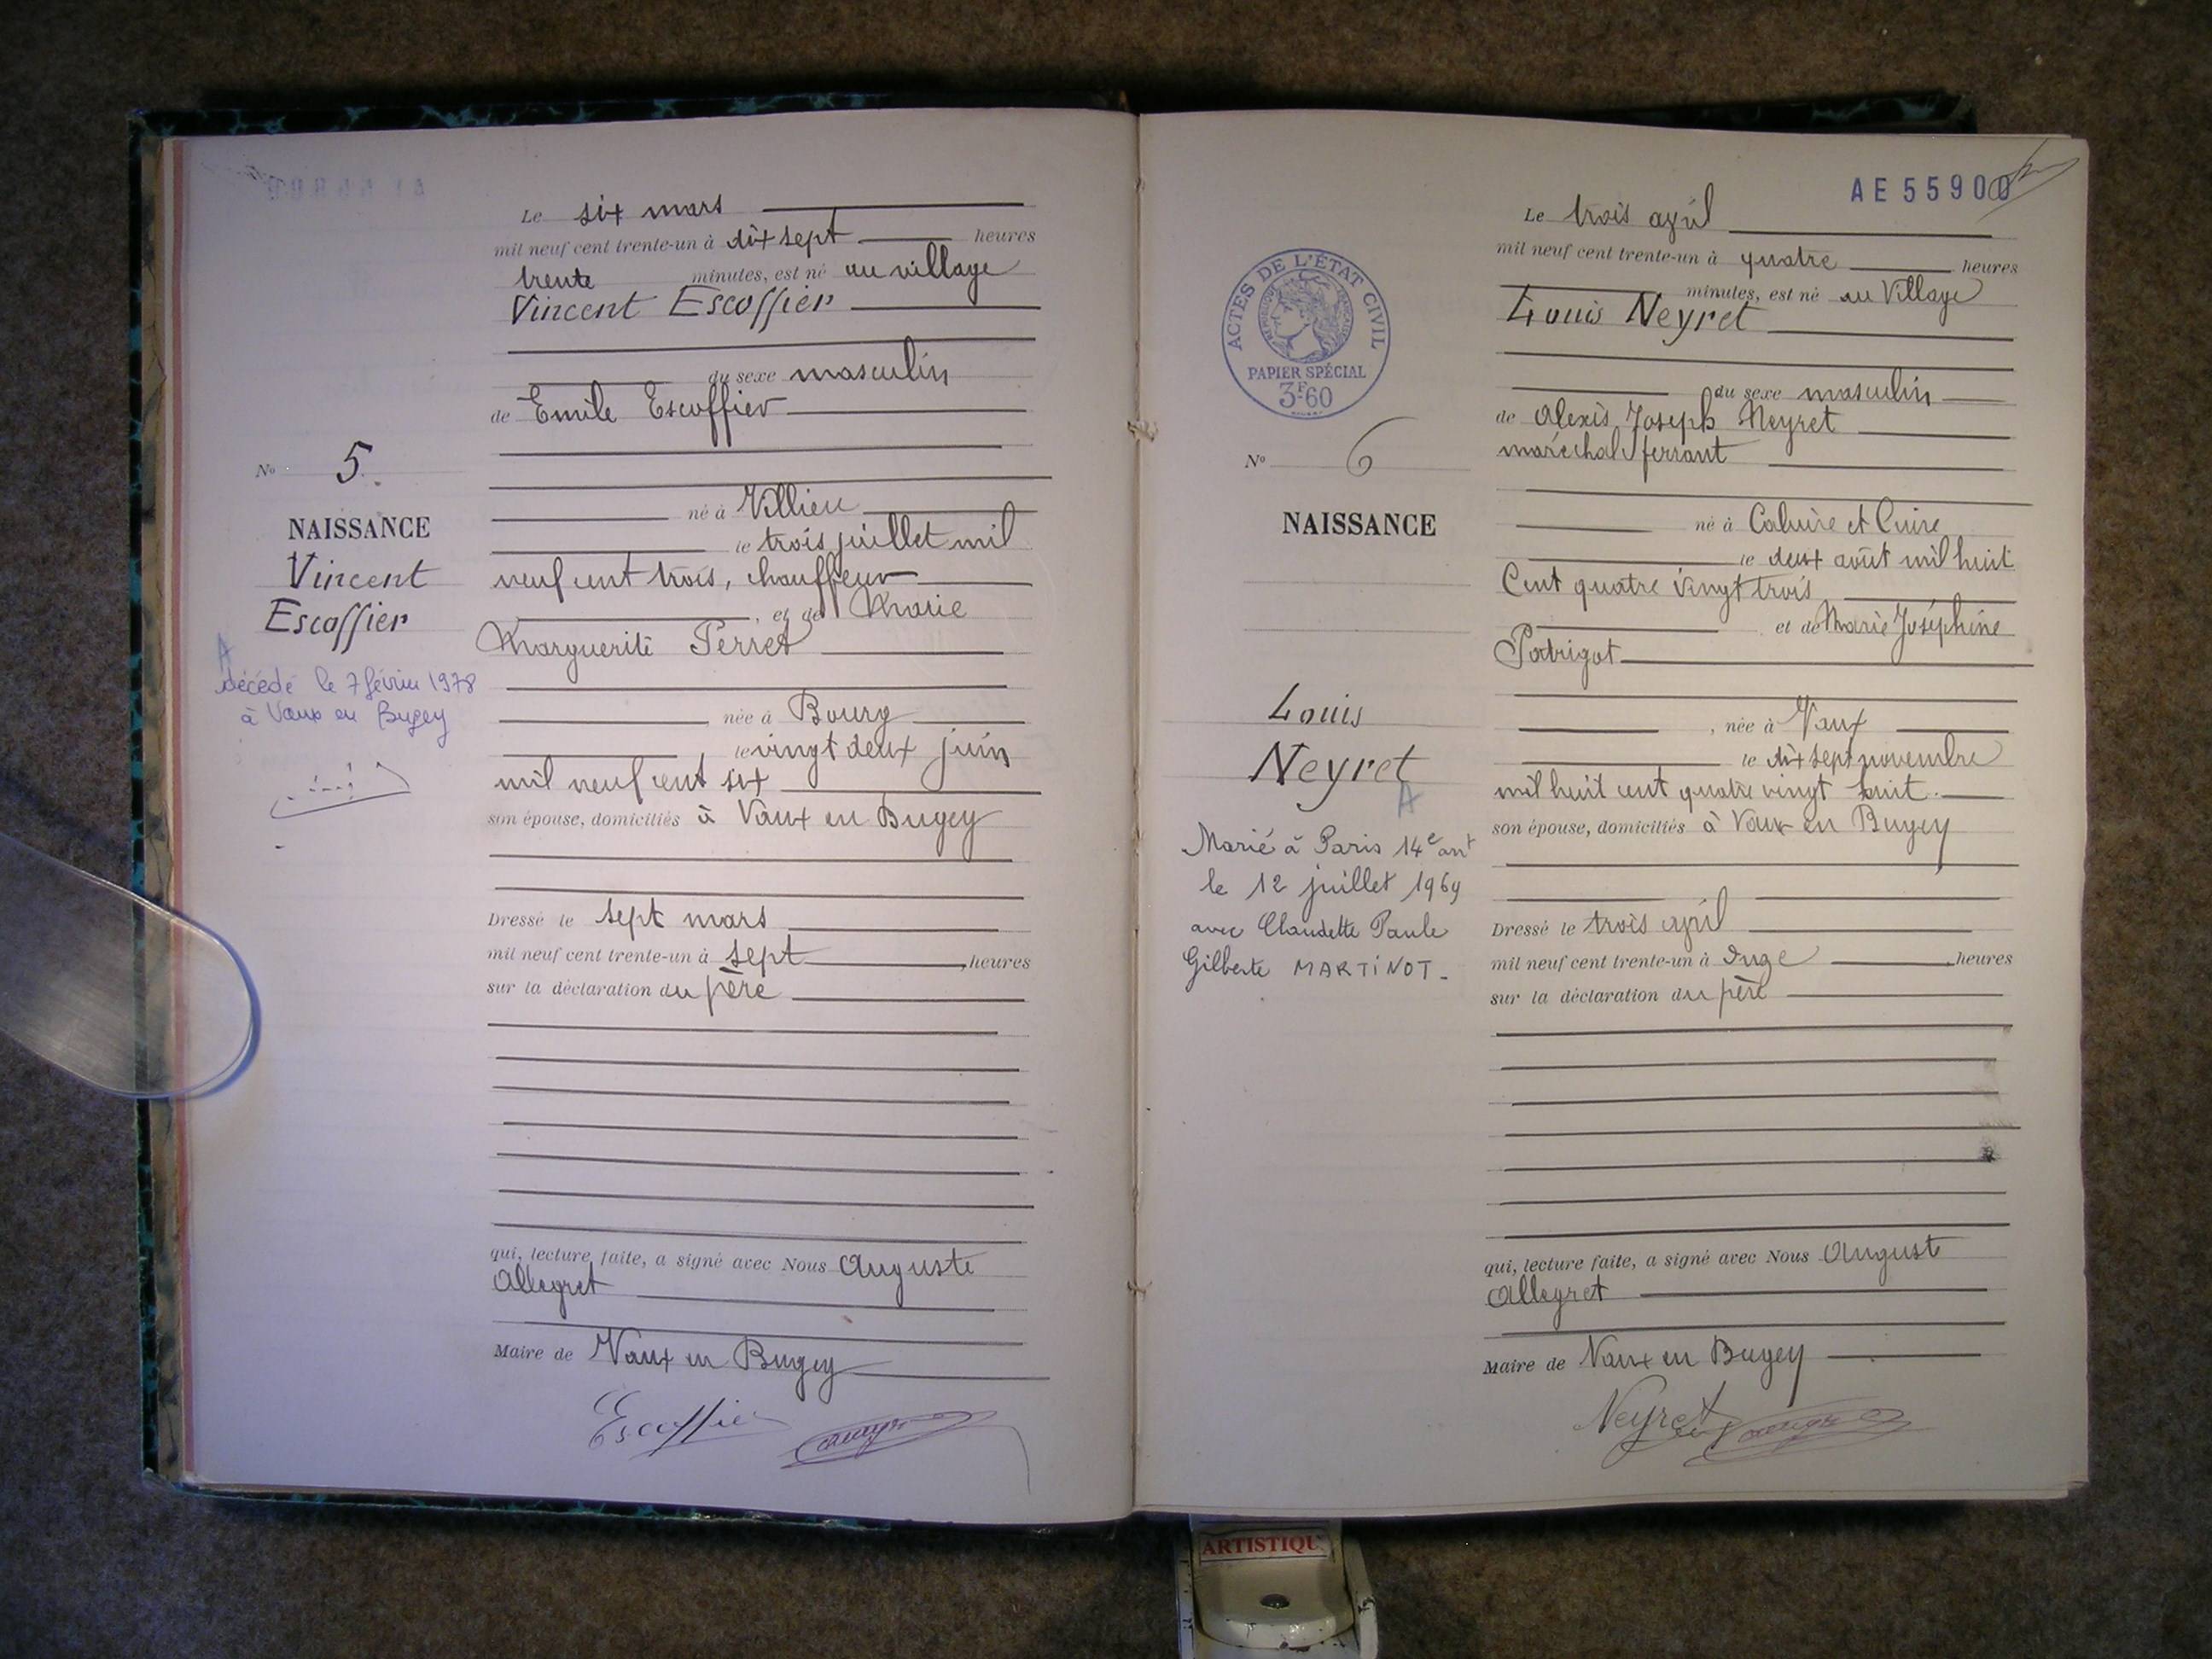 Le six mars
mil neuf cent trente-un à dix sept heures
trente minutes, est né au village
Vincent Escoffier
du sexe masculin
de Emile Escoffier
No 5.
né à Villieu
NAISSANCE
le trois juillet mil
Vincent
neuf cent trois, chauffeur
Escoffier
et de Marie
Marguerite Perret
décédé le 7 février 1978
à Vaux en Bugey
née à Bourg
le vingt deux juin
mil neuf cent six
son épouse, domiciliés à Vaux en Bugey
Dressé le sept mars
mil neuf cent trente-un à sept heures
sur la déclaration du père
qui, lecture faite, a signé avec Nous Auguste
Allegret
Maire de Vaux en Bugey
Escoffier
AE 55900
Le trois avril
mil neuf cent trente-un à quatre heures
minutes, est né au Village
Louis Neyret
ACTES DE L'ÉTAT CIVIL
PAPIER SPÉCIAL
3F.60
du sexe masculin
de Alexis Joseph Neyret
maréchal ferrant
No 6
NAISSANCE
né à Caluire et Cuire
le deux août mil huit
Cent quatre vingt trois
et de Marie Joséphine
Patrigot
Louis
Neyret
née à Vaux
le dix sept novembre
mil huit cent quatre vingt huit.
son épouse, domiciliés à Vaux en Bugey
Marié à Paris 14e arrt
le 12 juillet 1969
avec Claudette Paule
Gilberte MARTINOT-
Dressé le trois avril
mil neuf cent trente-un à onze heures
sur la déclaration du père
qui, lecture faite, a signé avec Nous Auguste
Allegret
Maire de Vaux en Bugey
Neyret
ARTISTIQU